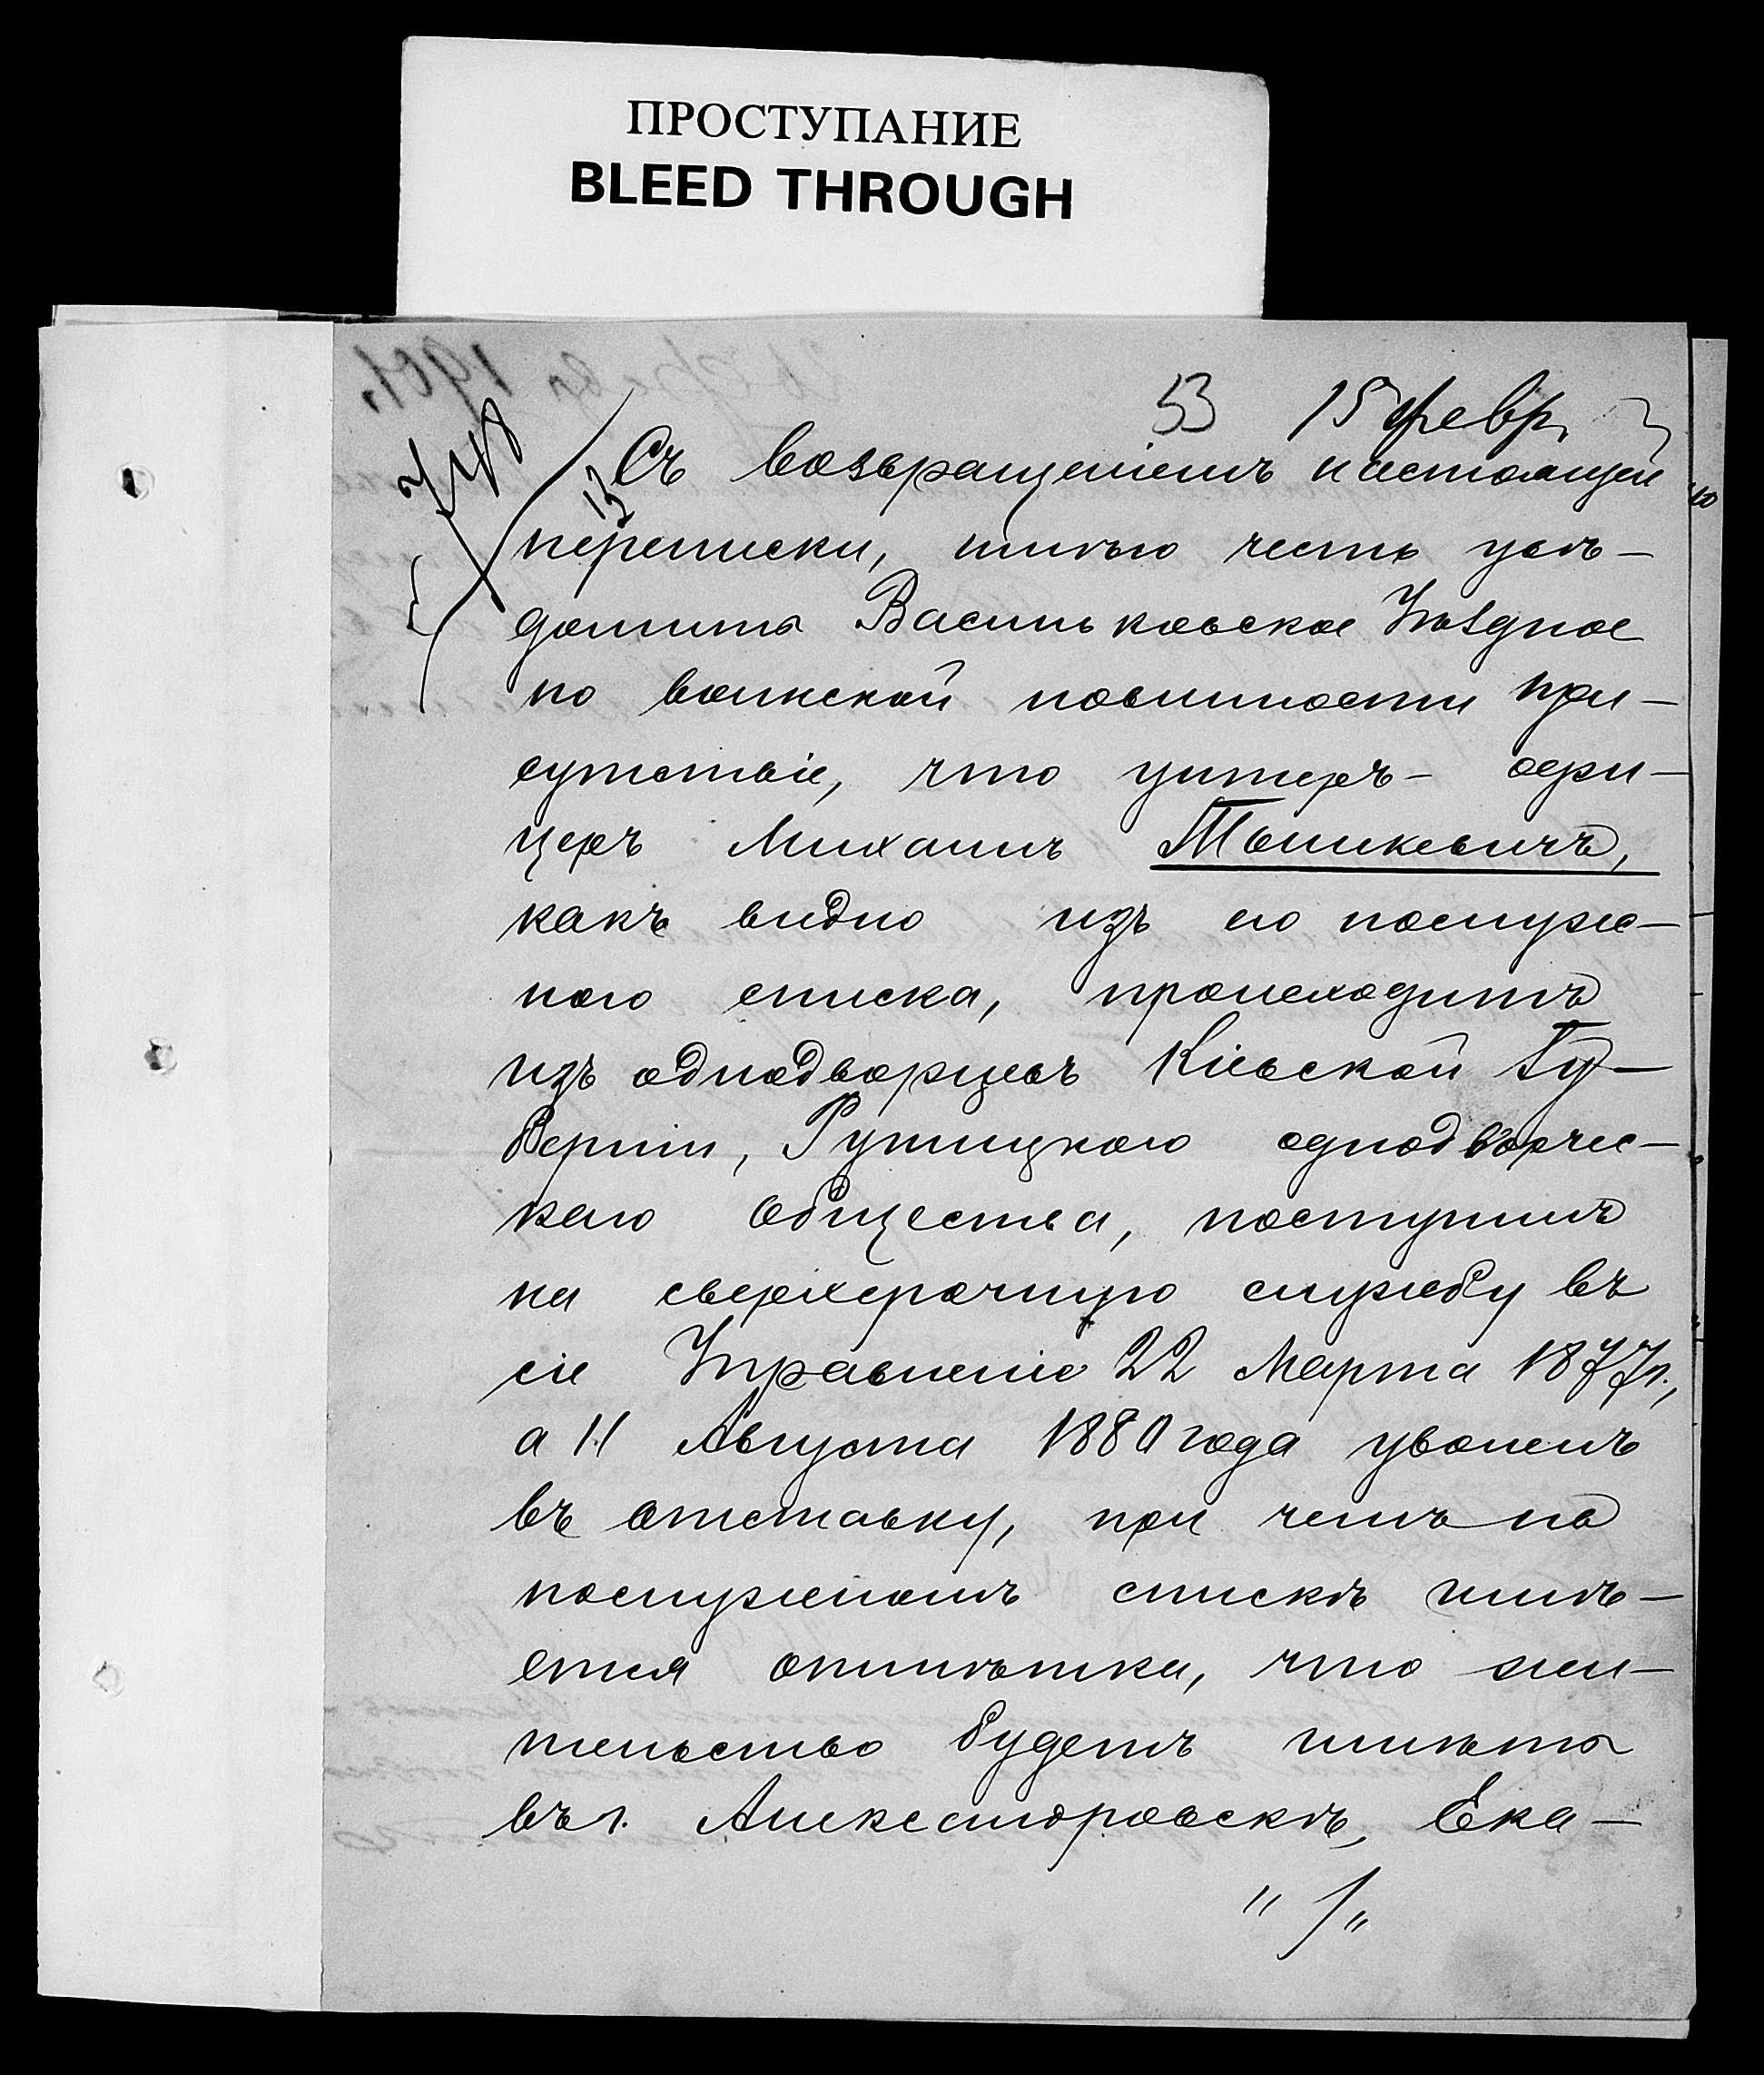 ПРОСТУПАНИЕ
BLEED THROUGH
53 15 февр.
13
Съ возвращеніемъ настоящей
переписки, имѣю честь увѣ-
домить Васильковское Уѣздное
по воинской повинности при-
сутствіе, что унтеръ- офи-
церъ Михаилъ Тышкевичъ,
какъ видно изъ его послуж-
ного списка, происходитъ
изъ однодворцевъ Кіевской Гу-
берніи, однодворчес-
каго Общества, поступилъ
на сверхсрочную службу въ
сіе Управленіе 22 Марта 1877г.,
а 11 Августа 1880 года уволенъ
въ отставку, при чемъ на
послужномъ спискѣ имѣ-
ется отмѣтка, что жи-
тельство будетъ имѣть
въ г. Александровскѣ, Ека-
" /. "